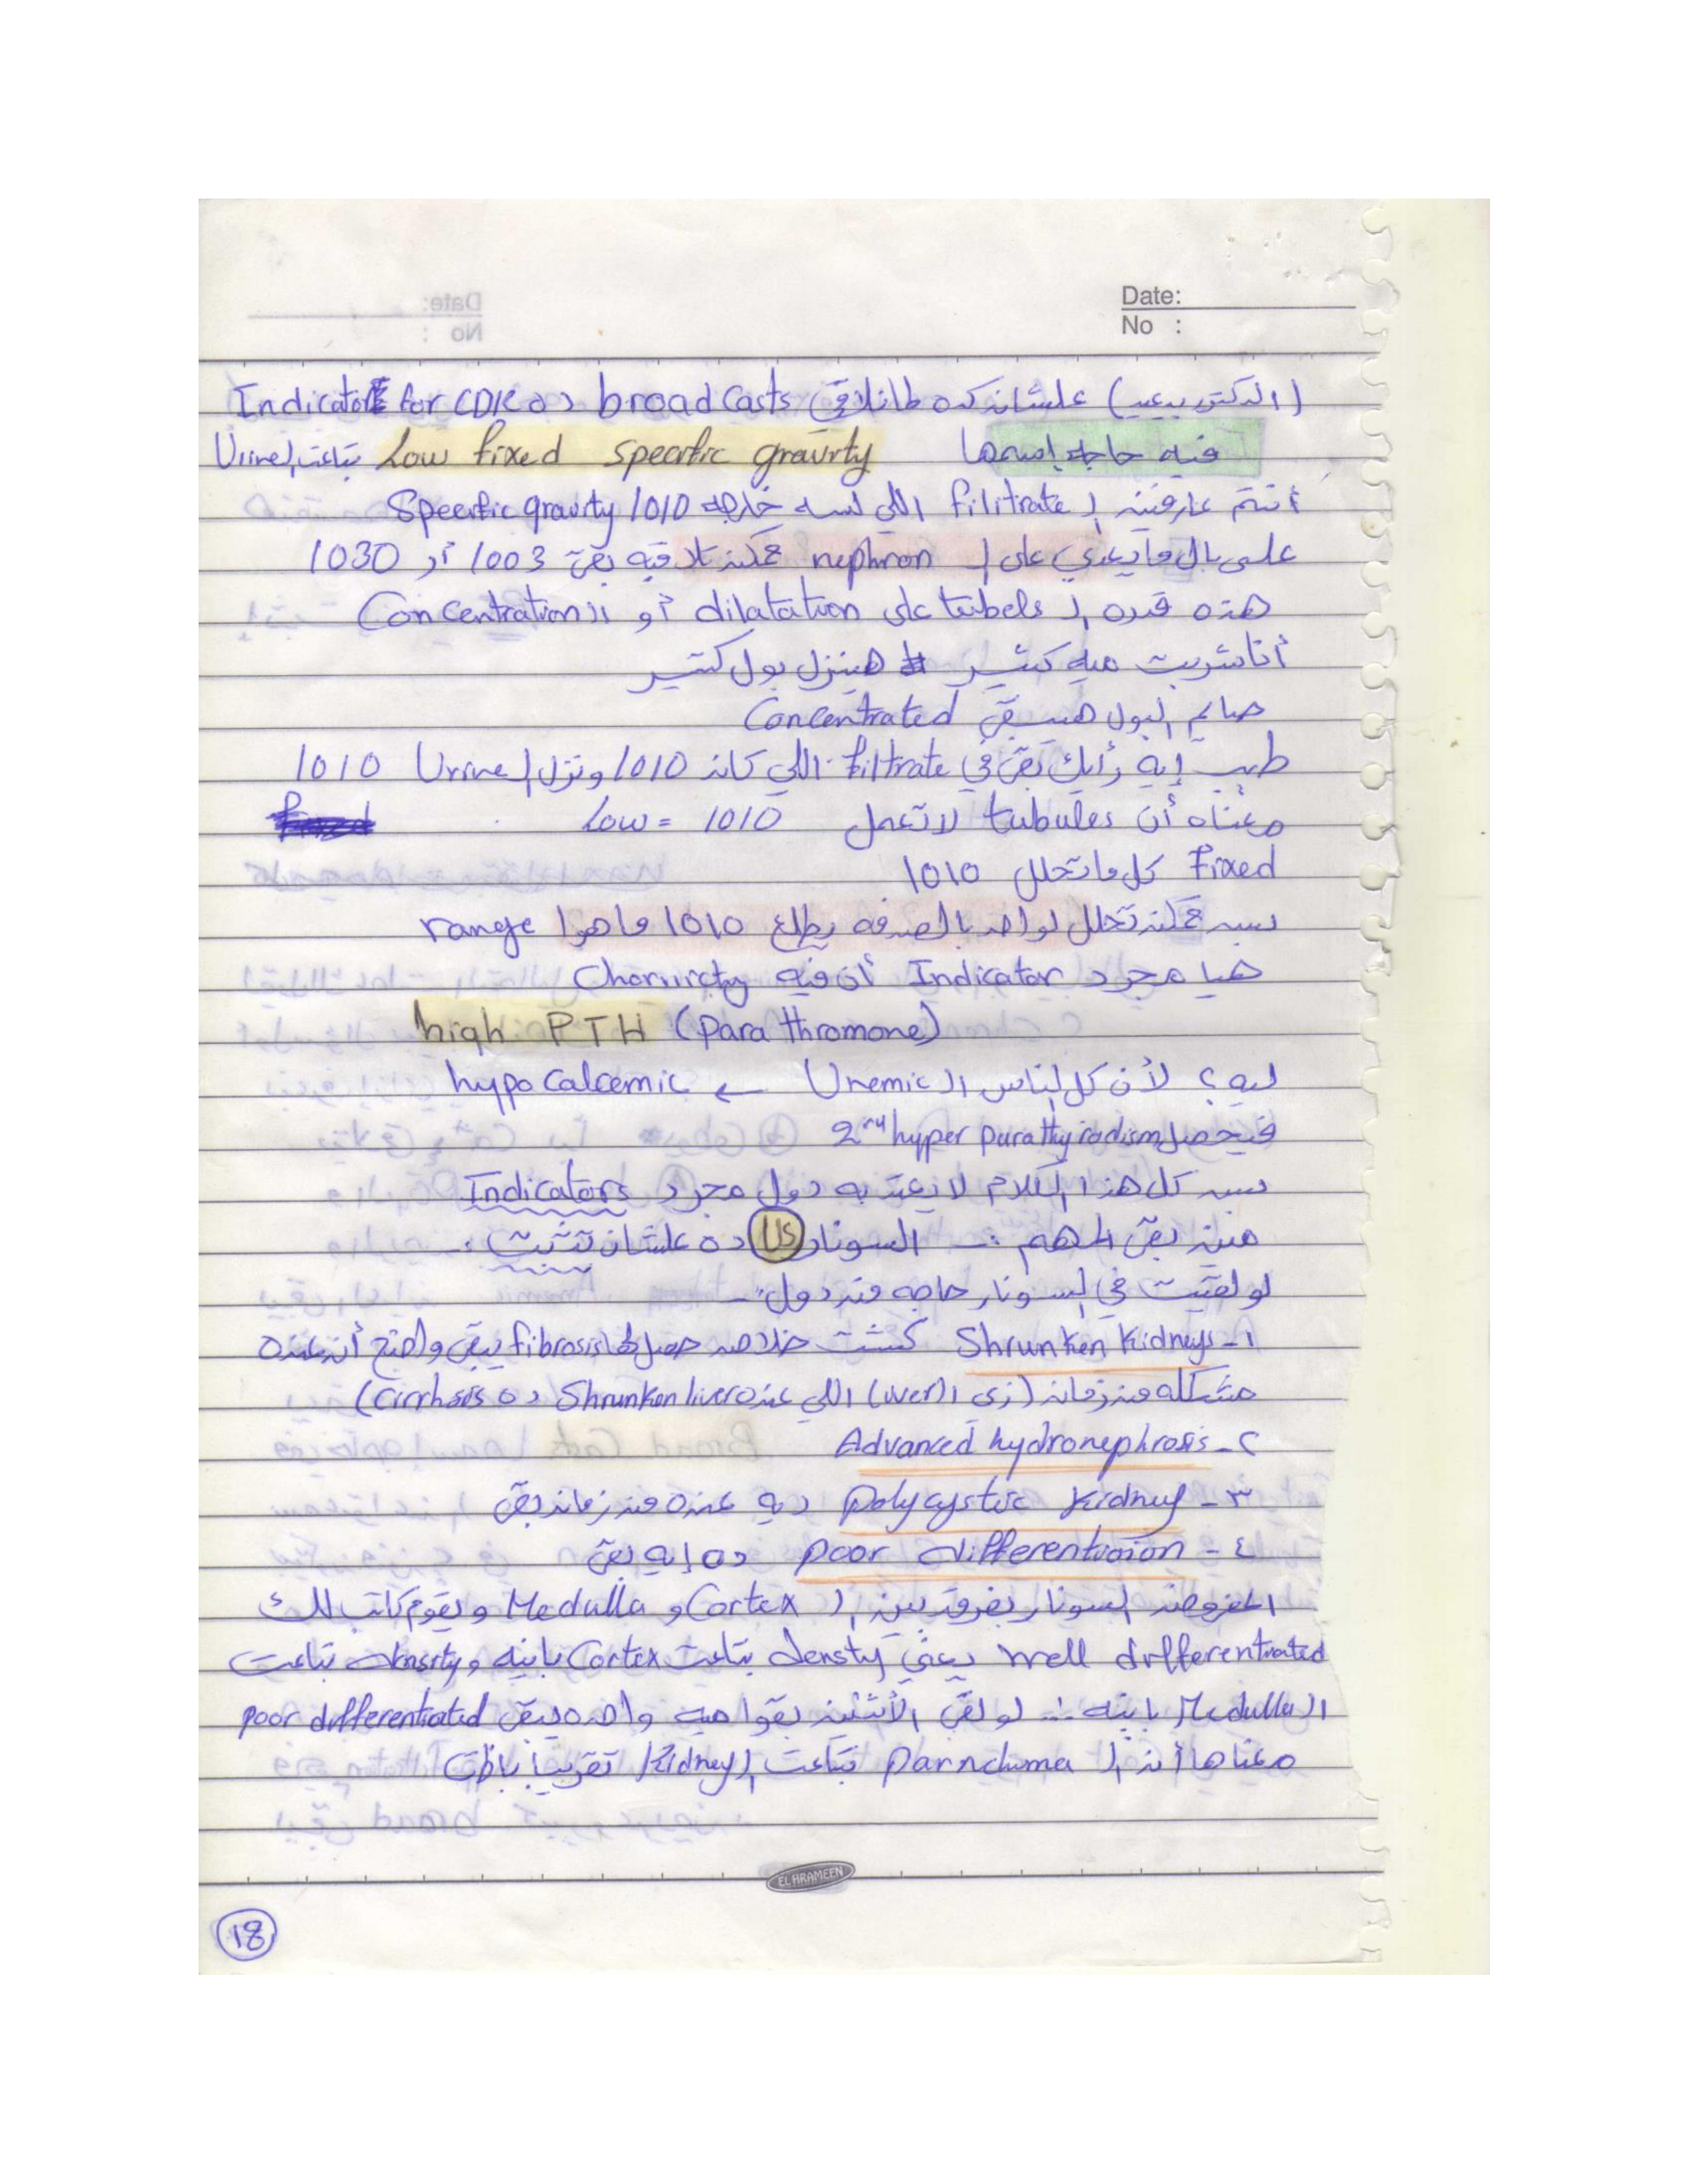 Date:
No :
(الدكتور بيعيد) علشان كده لما نلاقي broad casts ده Indicator for CDK
فيه حاجه اسمها Low fixed specific gravity بتاعت الـ Urine
أنتم عارفين الـ filitrate اللي لسه خارجه 1010 Specific gravity
على بال ما يعدي على الـ nephron ممكن تلاقيه بقى 1003 أو 1030
هذه قدره الـ tubels على dilatation أو الـ Concentration
أنا شربت ميه كتير هينزل بول كتير
صايم البول هيبقى Concentrated
طيب إيه رأيك بقى في filtrate اللي كان 1010 ونزل الـ Urine 1010
معناه أن tubules لا تعمل Low = 1010
Fixed كل ما تحلل 1010
بس ممكن تحلل لواحد بالصدفه يطلع 1010 ما هوا range
هيا مجرد Indicator أن فيه Chonircty
high PTH (para thromone)
ليه؟ لأن كل الناس الـ Uremic ← hypo calcemic
فيحصل 2ry hyper parathyriodism
بس كل هذا الكلام لا يعتد به دول مجرد Indicators
مين بقى المهم :- السونار US ده علشان تثبت :-
لو لقيت في السونار حاجه من دول :-
١- Shrunken Kidneys كشت خلاص حصل لها fibrosis يبقى واضح أن عنده
مشكله من زمان (زى الـ liver) اللي عنده Shrunken liver ده Cirrhosis)
٢- Advanced hydronephrosis
٣- polycystic kidney ديه عنده من زمان بقى
٤- poor differentiation ده إيه بقى
المفروض السونار يفرق بين الـ Cortex و Medulla ويقوم كاتب لك
well differentiated يعني density بتاعت Cortex باينه و density بتاعت
الـ Medulla باينه ... لو لقى الأثنين بقوا ميه واحده يبقى poor differentiated
معناها أن الـ parnchuma بتاعت الـ Kidney تقريبا باظت
EL ARAMEEN
18